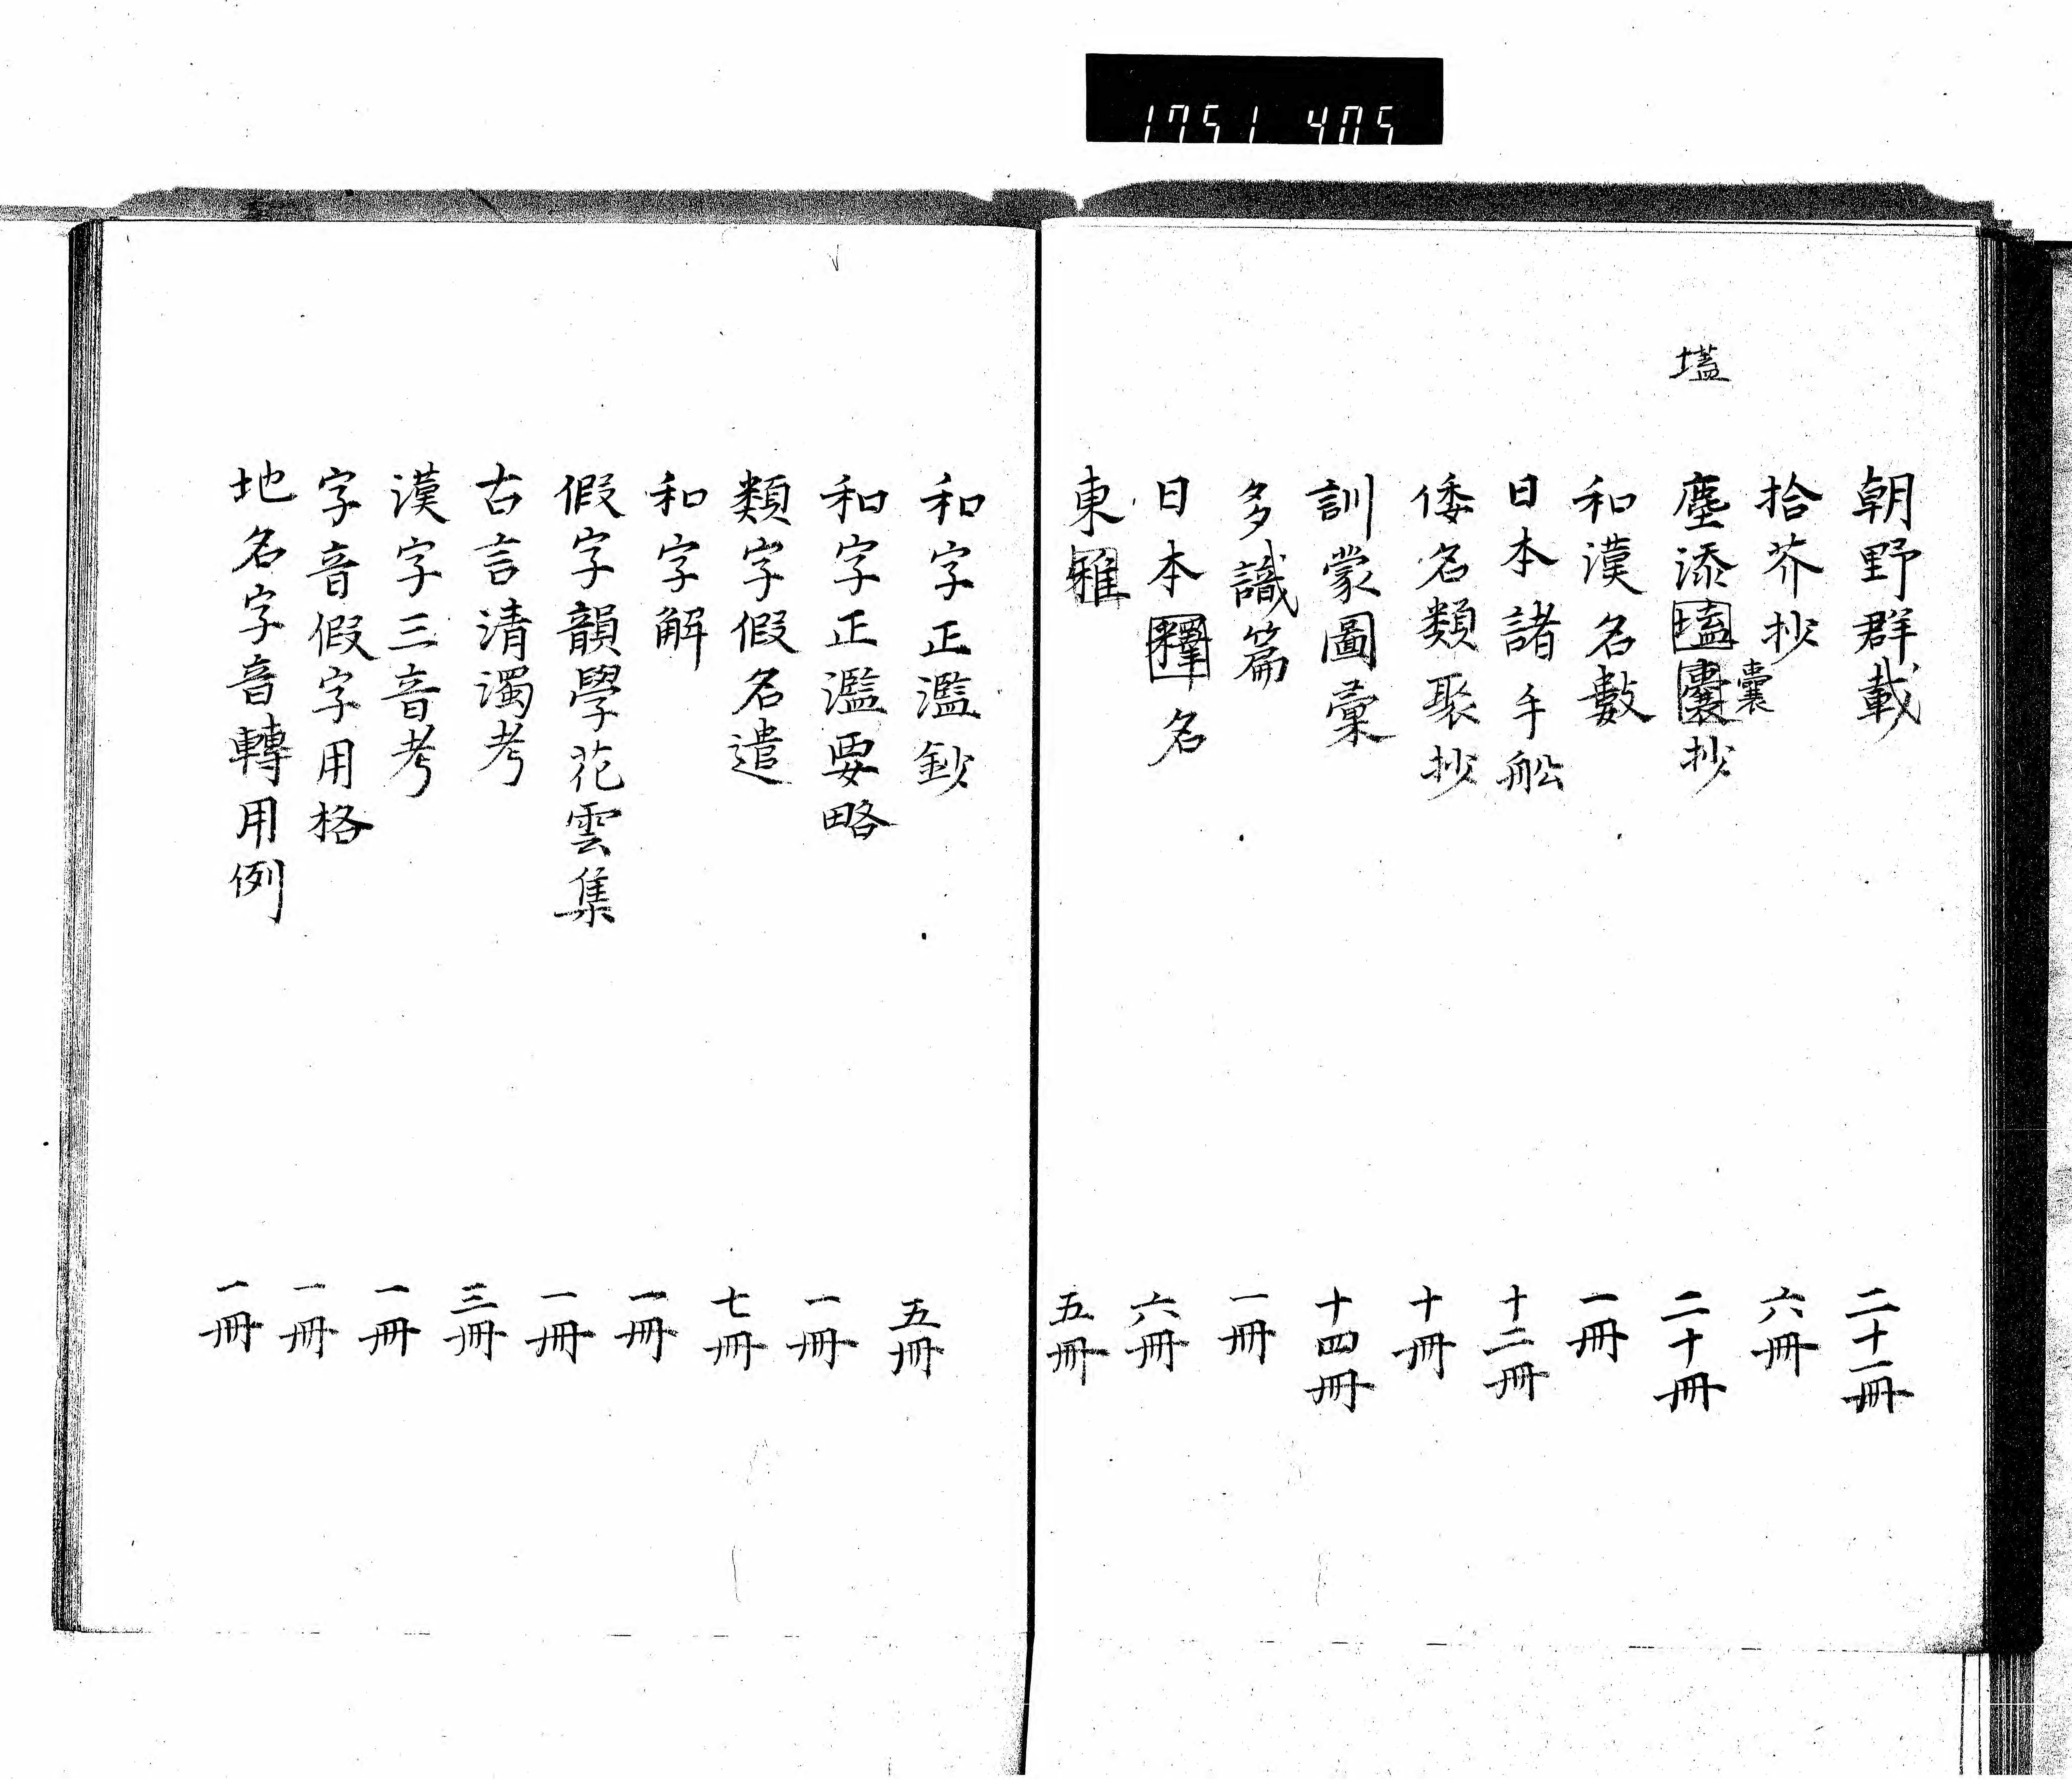 1751 405
朝野群載 二十一冊
拾芥抄 六冊
壒
塵添壒囊抄 二十冊
囊
和漢名數 一冊
日本諸手舩 十二冊
倭名類聚抄 十冊
訓蒙圖彙 十四冊
多識篇 一冊
日本釋名 六冊
東雅 五冊
和字正濫鈔 五冊
和字正濫要略 一冊
類字假名遣 七冊
和字解 一冊
假字韻學花雲集 一冊
古言清濁考 三冊
漢字三音考 一冊
字音假字用格 一冊
地名字音轉用例 一冊